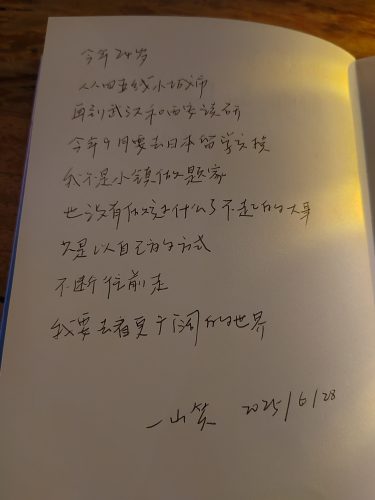 今年24岁
从四五线小城市
再到武汉和西安读研
今年9月要去日本留学交换
我不是小镇做题家
也没有做过什么了不起的大事
只是以自己的方式
不断往前走
我要去看更广阔的世界
一山笑 2025/6/28